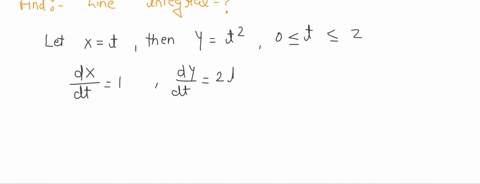 Find:- Line integral = ?
Let x = t , then y = t² , 0 ≤ t ≤ 2
dx/dt = 1 , dy/dt = 2